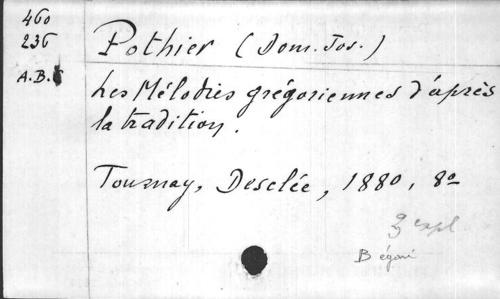 460
236
A.B.
Pothier (Dom. Jos.)
Les Mélodies grégoriennes d'après
la tradition.
Tournay, Desclée, 1880, 8o
expl
B